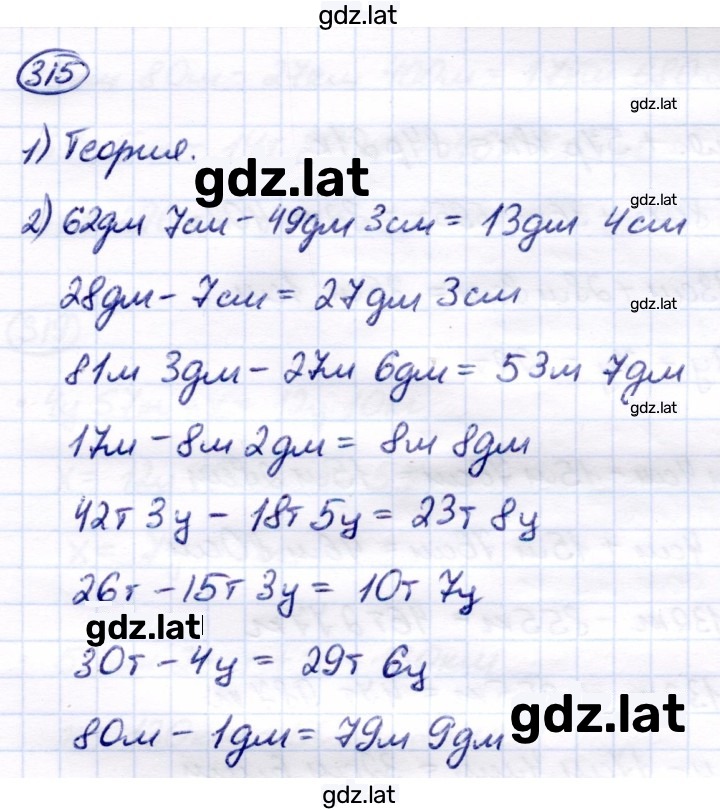 gdz.lat
315
gdz.lat
1) Теория.
gdz.lat
gdz.lat
2) 62дм 7см - 49дм 3см = 13дм 4см
28дм - 7см = 27дм 3см
gdz.lat
81м 3дм - 27м 6дм = 53м 7дм
gdz.lat
17м - 8м 2дм = 8м 8дм
42т 3ц - 18т 5ц = 23т 8ц
26т - 15т 3ц = 10т 7ц
gdz.lat
30т - 4ц = 29т 6ц
gdz.lat
80м - 1дм = 79м 9дм
gdz.lat